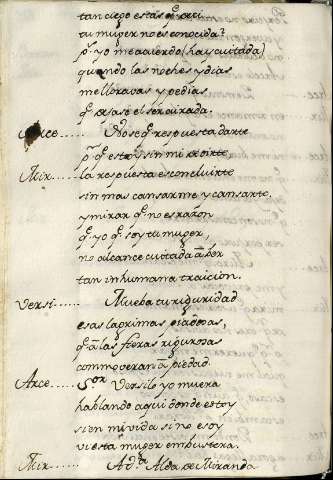 tan ciego estas q̃ aqui
tu muger no es conocida?
pº yo me acuerdo (hay cuitada)
quando las noches y dias
me lloravas y pedias
q̃ dejase el ser airada.
Arce...... No se q̃ respuesta darte
pº q̃ estoy sin mi
Mir...... la respuesta es concluirte
sin mas cansarme y cansarte.
y mirar q̃ no es razon
q̃ yo q̃ soy tu muger,
no alcance cuitada a ver
tan inhumana traicion.
Versi...... Mueba tu riguridad
esas lagrimas piadosas,
q̃ a las fieras rigurosas
commoveran a piedad.
Arce...... Sor Versilo yo muera
hablando aqui donde estoy
si en mi vida si no es oy
vi esta muger
Mir...... A Dª Alda de Miranda